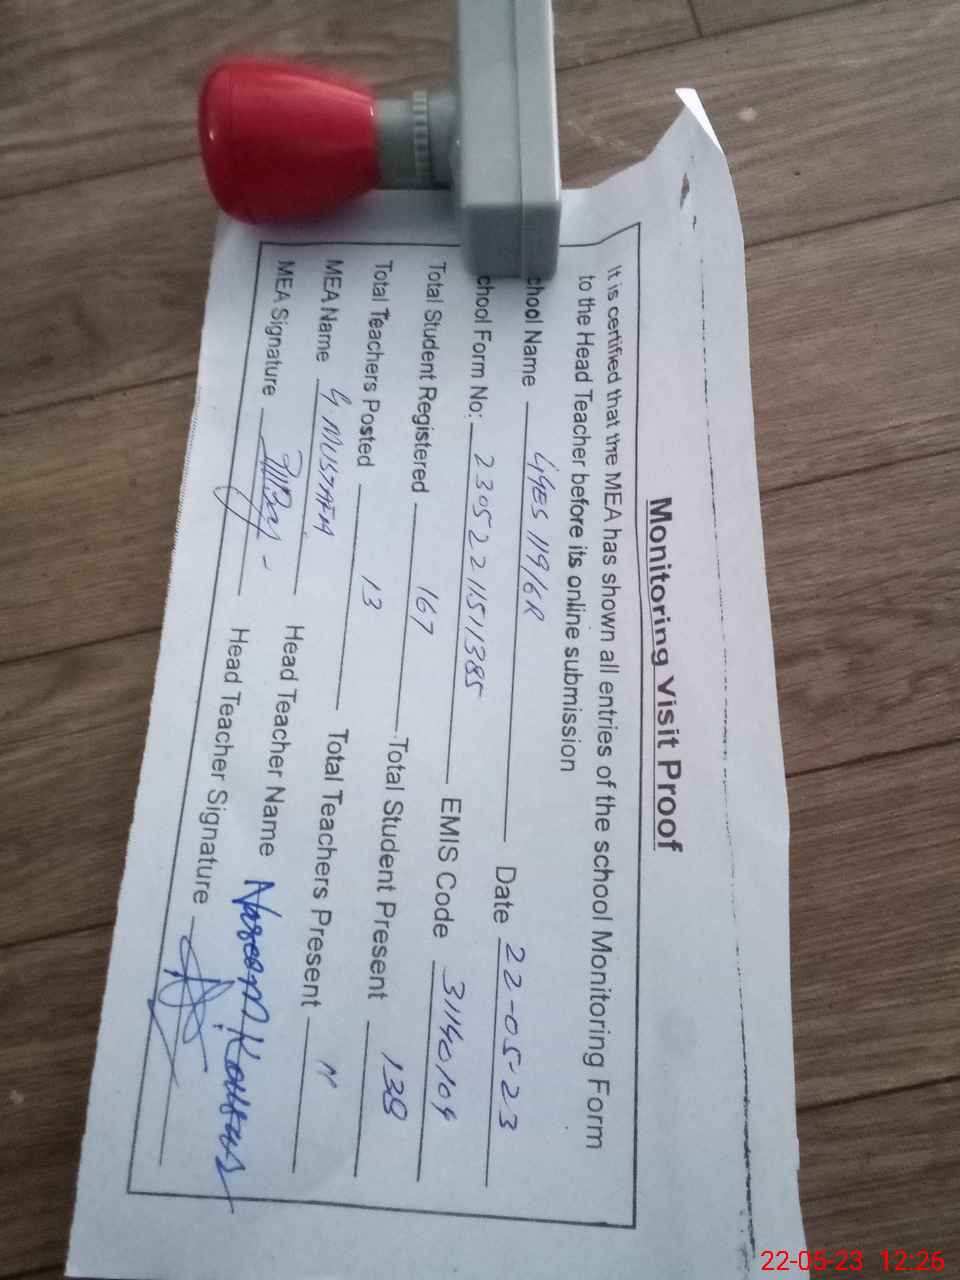 Monitoring visit Proof
It is certified that the MEA has shown all entries of the school Monitoring Form
to the Head Teacher before its online submission
chool Name GGES 119/6R Date 22-05-23
chool Form No: 2305221511385 EMIS Code 31140109
Total Student Registered 167 Total Student Present 138
Total Teachers Posted 13 Total Teachers Present
MEA Name G MUSTAFA Head Teacher Name Naseem Kousar
MEA Signature Head Teacher Signature
22-05-23 12:26